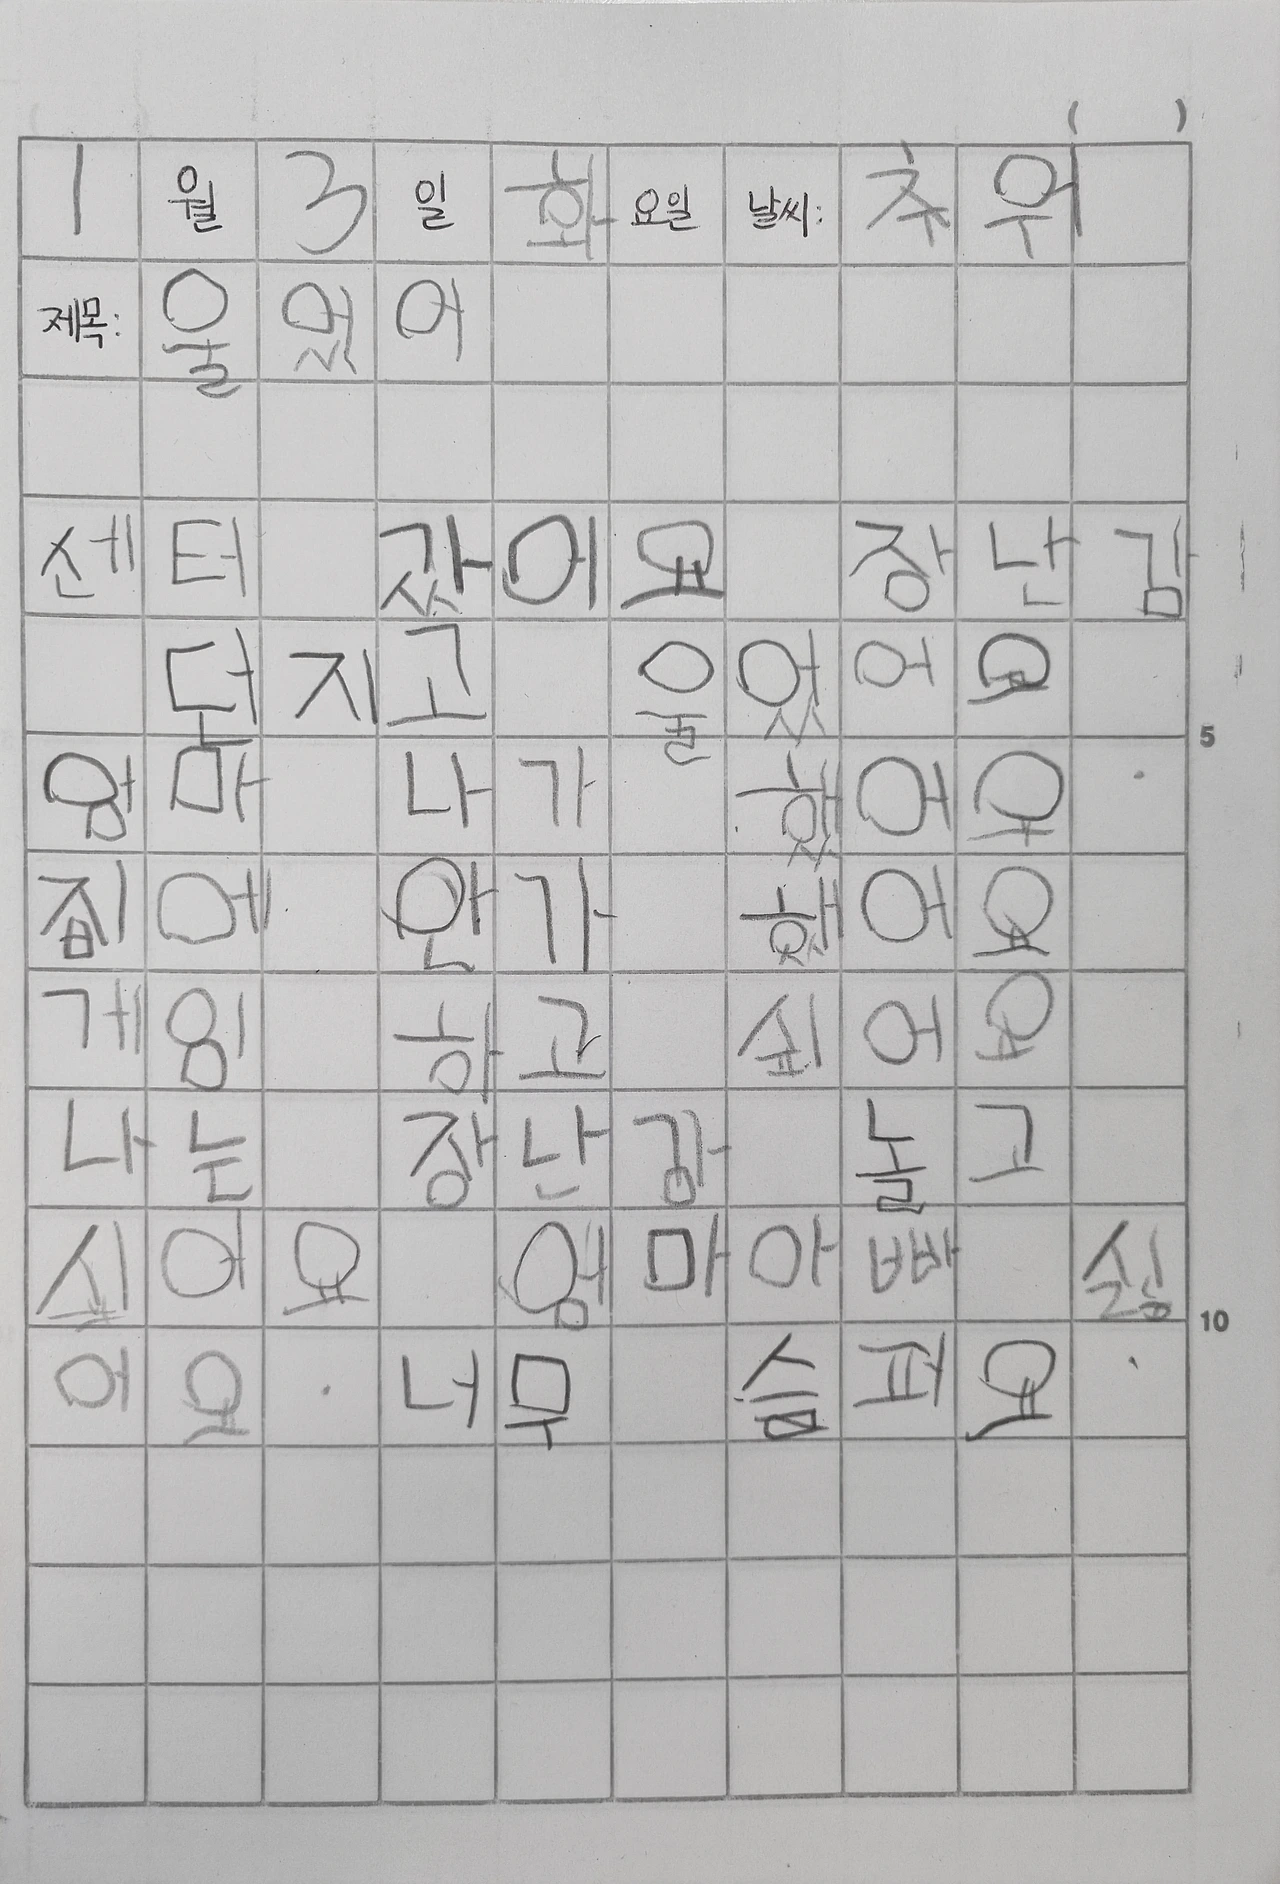 ( )
1월 3일 화요일 날씨: 추워
제목: 울었어
센터 갔어요 장난감
던지고 울었어요
5
엄마 나가 했어요.
집에 안가 했어요
게임 하고 싶어요
나는 장난감 놀고
싶어요 엄마아빠 싫
10
어요. 너무 슴퍼요.